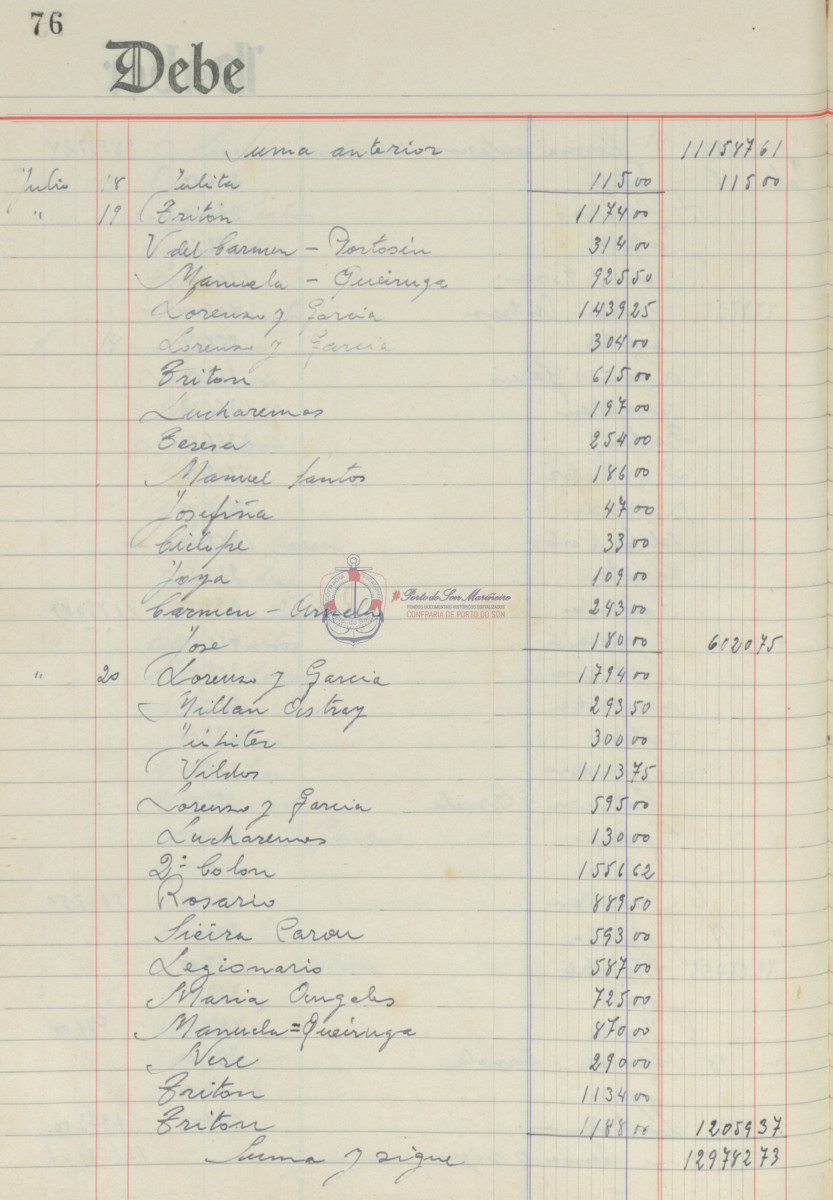 76
Debe
Suma anterior 111587 61
Julio 18 Julita 115 00 115 00
" 19 Triton 1174 00
V del Carmen - Portosin 314 00
Manuela - Queiruga 925 50
Lorenzo y Garcia 1439 25
Lorenzo y Garcia 304 00
Triton 615 00
Lucharemos 197 00
Teresa 254 00
Manuel Santos 186 00
Josefiña 47 00
Ciclope 33 00
Joya 109 00
Carmen - 243 00
Jose 180 00 6020 75
" 20 Lorenzo y Garcia 1794 00
Millan Astray 293 50
Júpiter 300 00
Vildos 1113 75
Lorenzo y Garcia 595 00
Lucharemos 130 00
2º Colon 1556 62
Rosario 889 50
Sieira Carou 593 00
Legionario 587 00
Maria Angeles 725 00
Manuela = Queiruga 870 00
Nere 290 00
Triton 1134 00
Triton 1188 00 12059 37
Suma y sigue 129782 73
# Porto do Son Mariñeiro
FONDOS DOCUMENTAIS HISTÓRICOS DIXITALIZADOS
CONFRARÍA DE PORTO DO SON